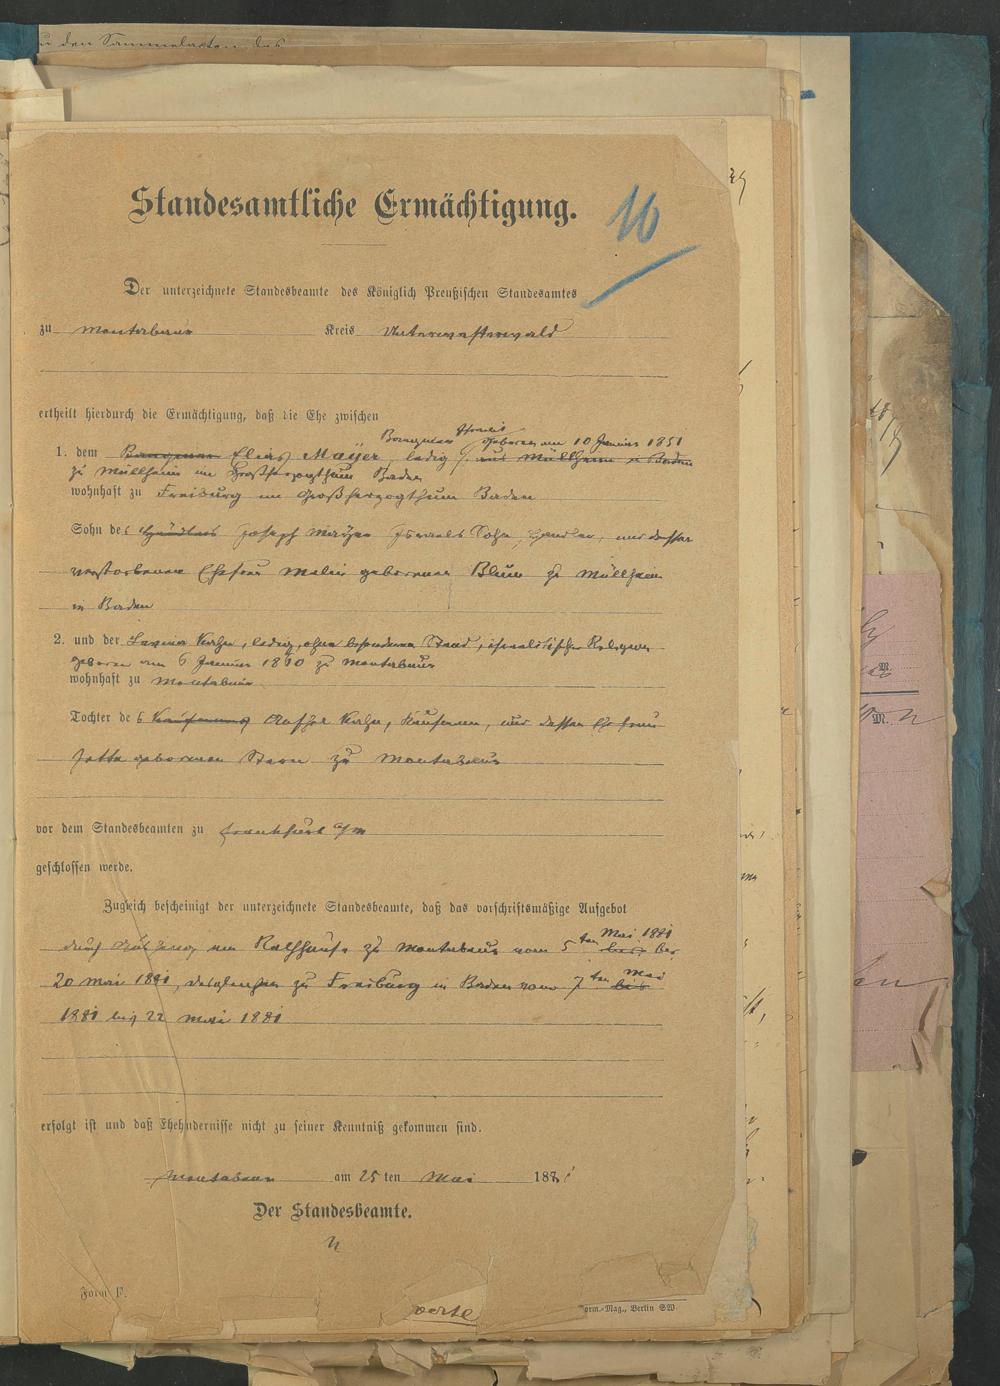 zu den Sammelakten des
Standesamtliche Ermächtigung.
16
Der unterzeichnete Standesbeamte des Königlich Preußischen Standesamtes
zu Montabaur Kreis Unterwesterwald
ertheilt hierdurch die Ermächtigung, daß die Ehe zwischen
geboren am 10 Januar 1851
1. dem Elias Mayer, ledig, aus Müllheim in Baden
zu Müllheim im Großherzogthum Baden
wohnhaft zu Freiburg im Großherzogthum Baden
Sohn des Joseph Mayer Israels Sohn, Händler, und dessen
verstorbenen Ehefrau Malie geborenen Blum zu Müllheim
in Baden
2. und der Kahn, ledig, ohne besonderen Stand, israelitischer Religion
geboren am 6 Januar 1860 zu Montabaur
wohnhaft zu Montabaur
Tochter des Kaufmanns Ascher Kahn, Kaufmann, und dessen Ehefrau
Jette geborenen Stern zu Montabaur
vor dem Standesbeamten zu Frankfurt a/M
geschlossen werde.
Zugleich bescheinigt der unterzeichnete Standesbeamte, daß das vorschriftsmäßige Aufgebot
Mai 1881
durch Aushang am Rathhause zu Montabaur vom 5ten bis
Mai
20 Mai 1881, desgleichen zu Freiburg in Baden vom 7ten bis
1881 bis 22 Mai 1881
erfolgt ist und daß Ehehindernisse nicht zu seiner Kenntniß gekommen sind.
Montabaur am 25 ten Mai 1881
Der Standesbeamte.
Form F.
orm.-Mag., Berlin SW